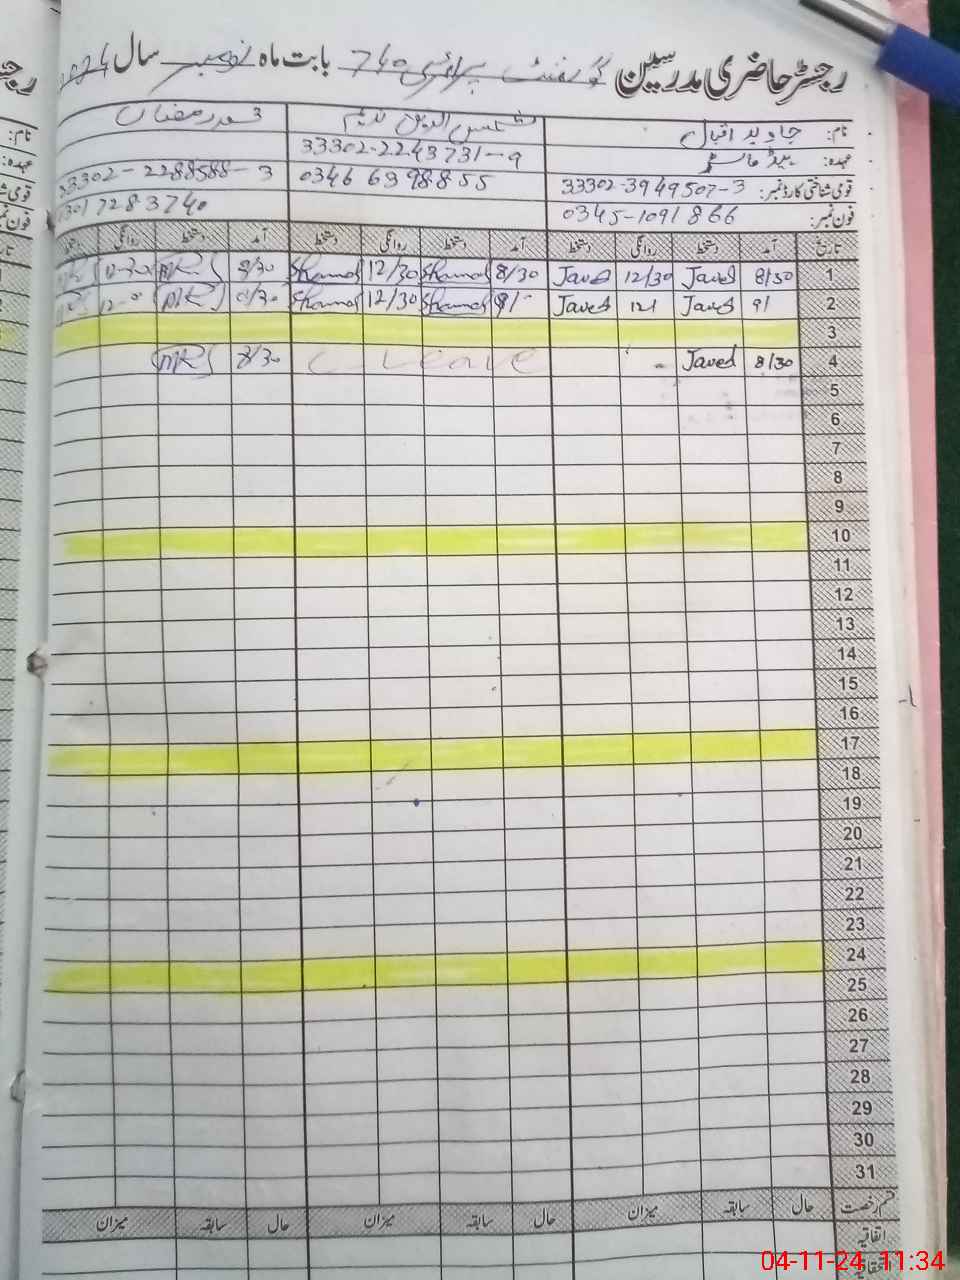 رجسٹر حاضری مدرسین گورنمنٹ پرائمری 740 بابت ماہ نومبر سال 2024
نام: جاوید اقبال شمس الدین ندیم محمد رمضان
عہدہ: ہیڈ ماسٹر 33302-2243731-9
قومی شناختی کارڈ نمبر: 33302-3949507-3 0346 6398855 33302-2288588-3
فون نمبر: 0345-1091866 0301 7283740
تاریخ آمد دستخط روانگی دستخط آمد دستخط روانگی دستخط آمد دستخط روانگی دستخط
1 8/30 Javed 12/30 Javed 8/30 Shamas 12/30 Shamas 8/30
2 9/ Javed 12/ Javed 9/ Shamas 12/30 Shamas
3
4 8/30 Javed C Leave 8/30
5
6
7
8
9
10
11
12
13
14
15
16
17
18
19
20
21
22
23
24
25
26
27
28
29
30
31
قسم رخصت حال سابقہ میزان حال سابقہ میزان حال سابقہ میزان
اتفاقیہ
04-11-24 11:34